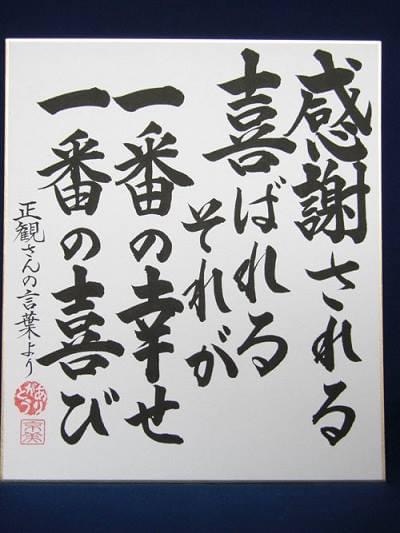 感謝される
喜ばれる
それが
一番の幸せ
一番の喜び
正観さんの言葉より
ありがとう